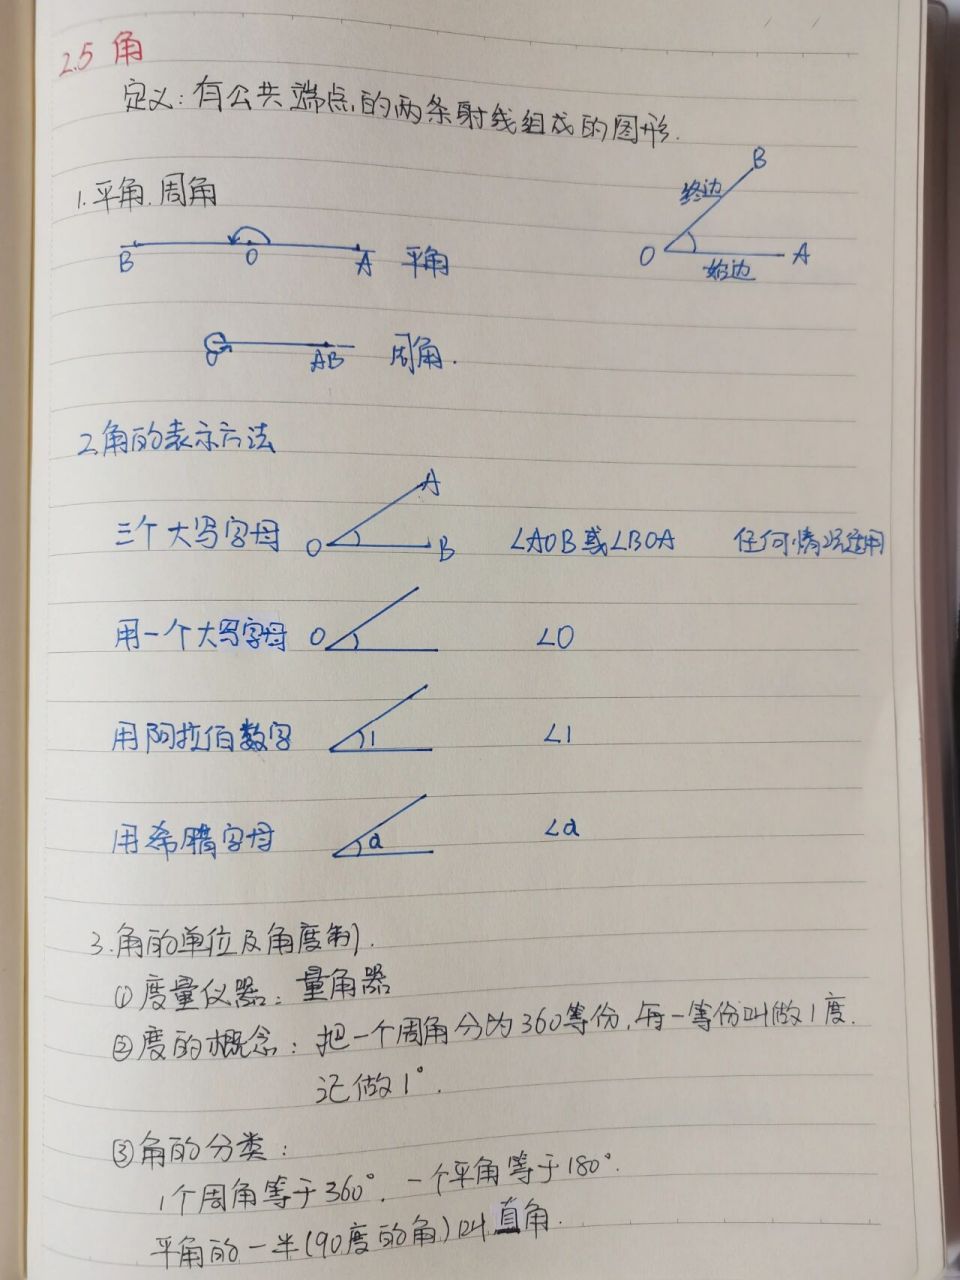 2.5 角
定义：有公共端点的两条射线组成的图形.
1.平角.周角
B O A 平角
终边 B
O A
始边
O AB 周角.
2.角的表示方法
三个大写字母 O A B ∠AOB或∠BOA 任何情况适用
用一个大写字母 O ∠O
用阿拉伯数字 1 ∠1
用希腊字母 α ∠α
3.角的单位及角度制.
①度量仪器：量角器
②度的概念：把一个周角分为360等份,每一等份叫做1度.
记做1°.
③角的分类：
1个周角等于360°.一个平角等于180°.
平角的一半(90度的角)叫直角.